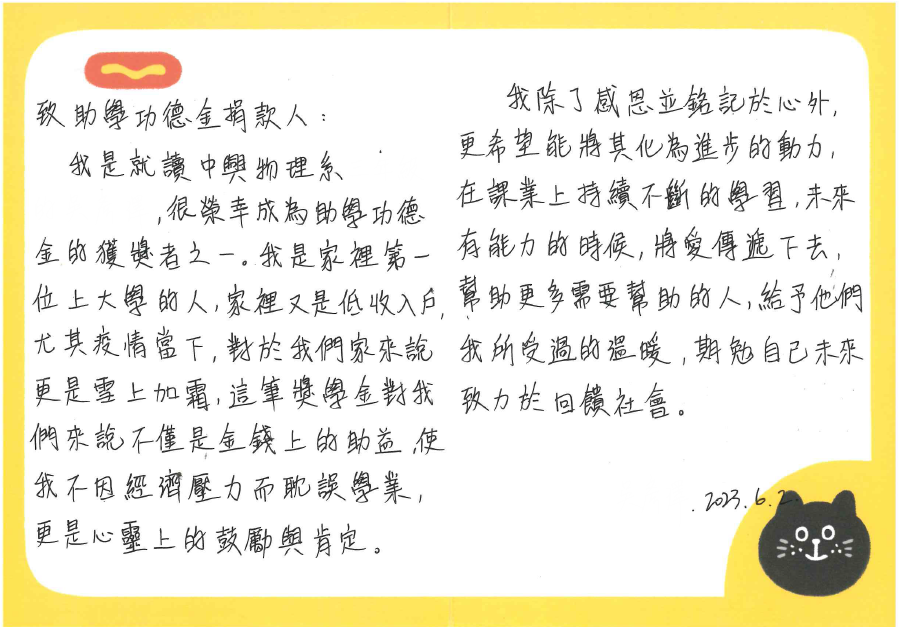 致助學功德金捐款人：
我是就讀中興物理系
，很榮幸成為助學功德
金的獲獎者之一。我是家裡第一
位上大學的人，家裡又是低收入戶，
尤其疫情當下，對於我們家來說
更是雪上加霜，這筆獎學金對我
們來說不僅是金錢上的助益，使
我不因經濟壓力而耽誤學業，
更是心靈上的鼓勵與肯定。
我除了感恩並銘記於心外，
更希望能將其化為進步的動力，
在課業上持續不斷的學習，未來
有能力的時候，將愛傳遞下去，
幫助更多需要幫助的人，給予他們
我所受過的溫暖，期勉自己未來
致力於回饋社會。
2023.6.2.